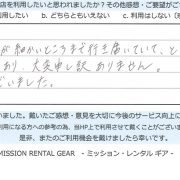 店を利用したいと思われましたか?その他感想・ご要望がご
利用したい　b. どちらともいえない　c. 利用はしない(そ
が細かいところまで行き届いていて、と
あり、大変申し訳ありません。
ざいました。
いました。戴いたご感想・意見を大切に今後のサービス向上に
利用になる方への参考の為、当HP上で利用させて戴くことがございま
是非、またのご利用機会を戴けましたら幸いです。
MISSION RENTAL GEAR - ミッション・レンタル ギア -